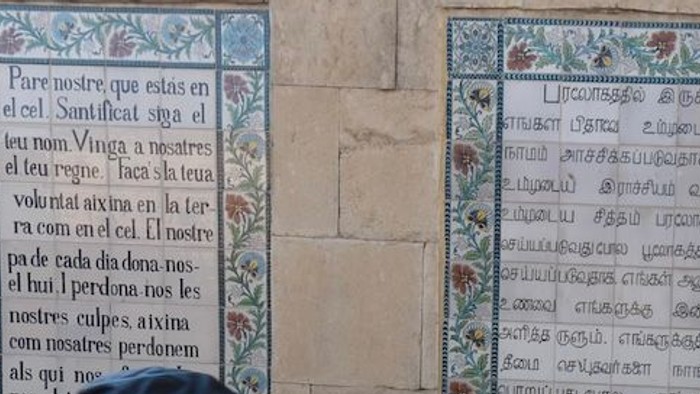 Pare nostre, que estàs en
el cel. Santificat siga el
teu nom. Vinga a nosatres
el teu regne. Faça's la teua
voluntat aixina en la ter-
ra com en el cel. El nostre
pa de cada dia dona-nos-
el hui. I perdona-nos les
nostres culpes, aixina
com nosatres perdonem
als qui nos
பரலோகத்தில்
எங்கள பிதாவே உம்முடை
நாமம் அர்ச்சிக்கப்படுவதாக
உம்முடைய் இராச்சியம்
உம்முடைய சித்தம் பரலோ
செய்யப்படுவதுபோல பூலோகத்
செய்யப்படுவதாக. எங்கள்
உணவை எங்களுக்கு
அளித்தருளும். எங்களுக்கு
தீமை செய்தவர்களை நாங்